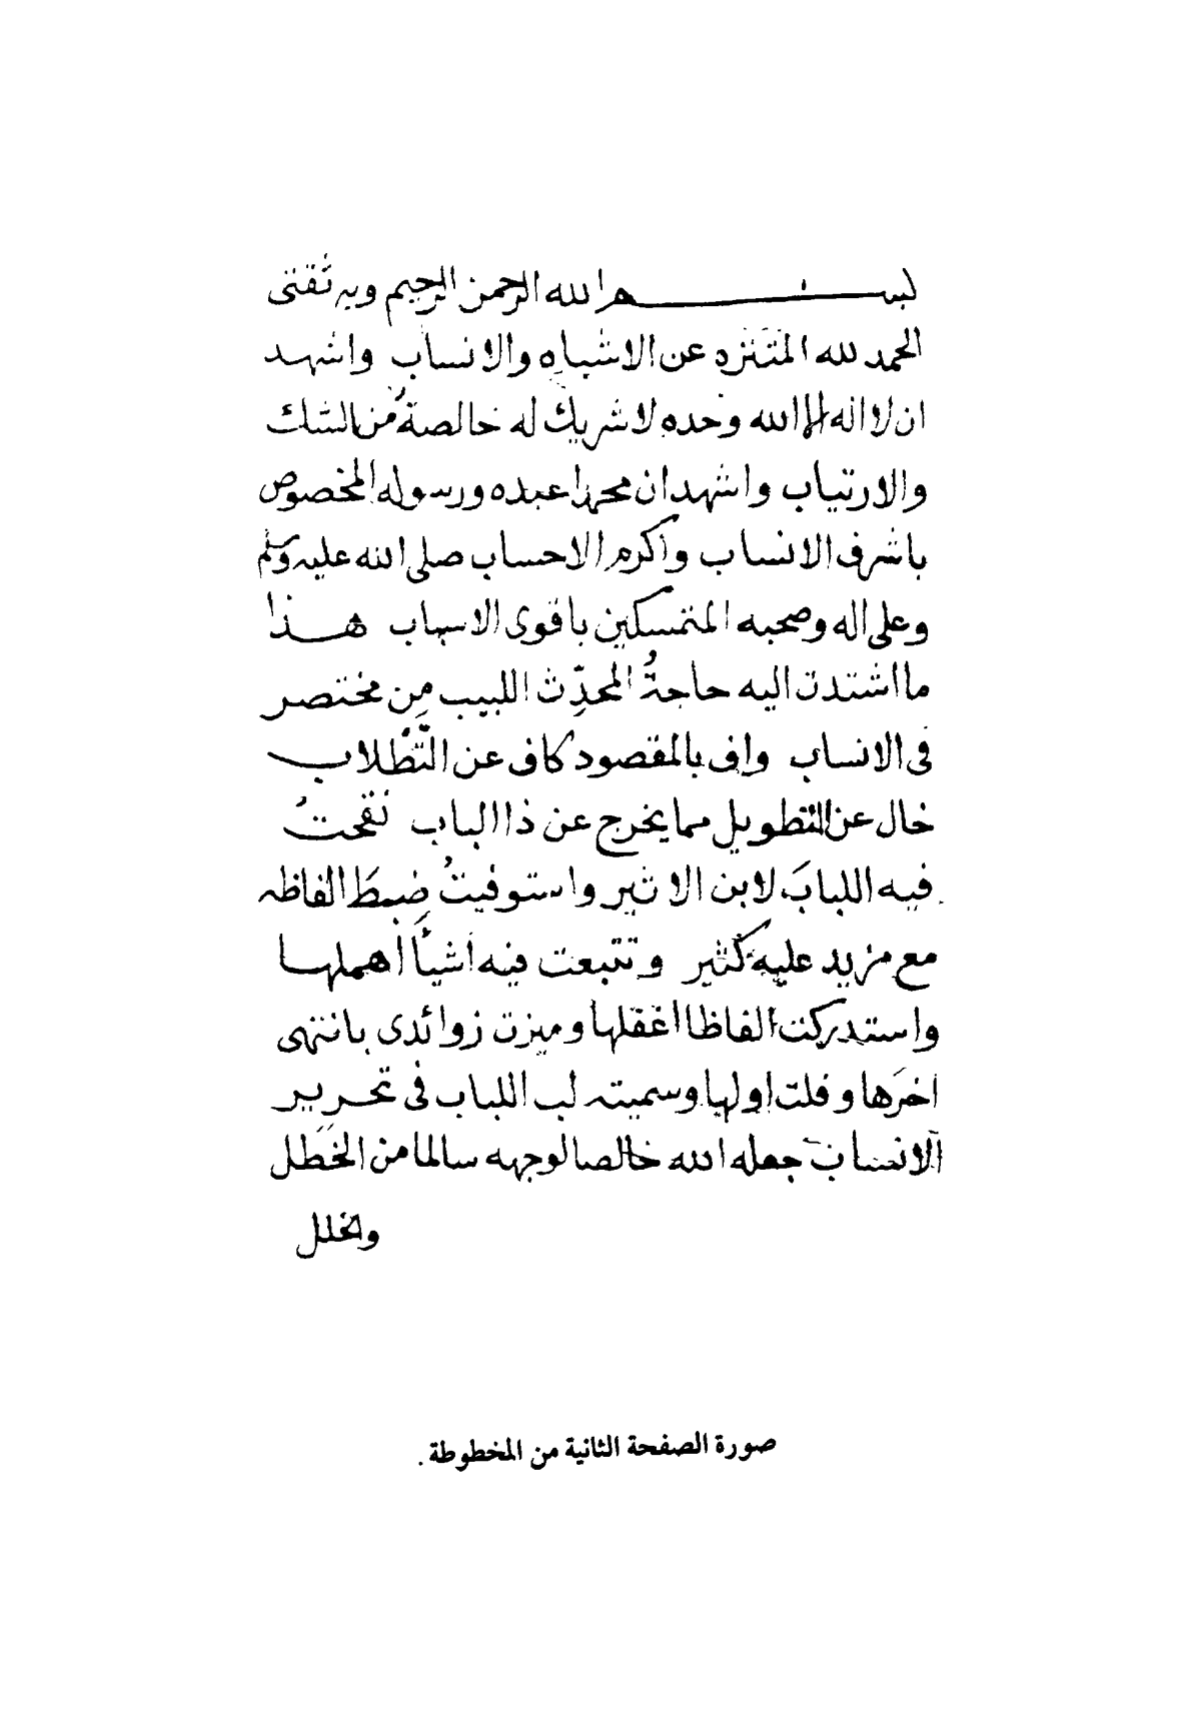 بسم الله الرحمن الرحيم وبه ثقتى
الحمد لله المتنزه عن الاشباه والانساب واشهد
ان لا اله الا الله وحده لا شريك له خالصة من الشك
والارتياب واشهد ان محمدا عبده ورسوله المخصوص
باشرف الانساب واكرم الاحساب صلى الله عليه وسلم
وعلى اله وصحبه المتمسكين باقوى الاسباب هذا
ما اشتدت اليه حاجةُ المحدِّث اللبيب مِن مختصر
فى الانساب واف بالمقصود كاف عن التَّطْلاب
خال عن التطويل مما يخرج عن ذا الباب نقحتُ
فيه اللبابَ لابن الاثير واستوفيتُ ضبطَ الفاظه
مع مزيد عليه كثير وتتبعت فيه اشيأ اهملها
واستدركت الفاظا اغفلها وميزت زوائدى بانتهى
اخرَها وقلت اولها وسميته لب اللباب فى تحرير
الانساب جعله الله خالصا لوجهه سالما من الخَطَل
والخلل
صورة الصفحة الثانية من المخطوطة .